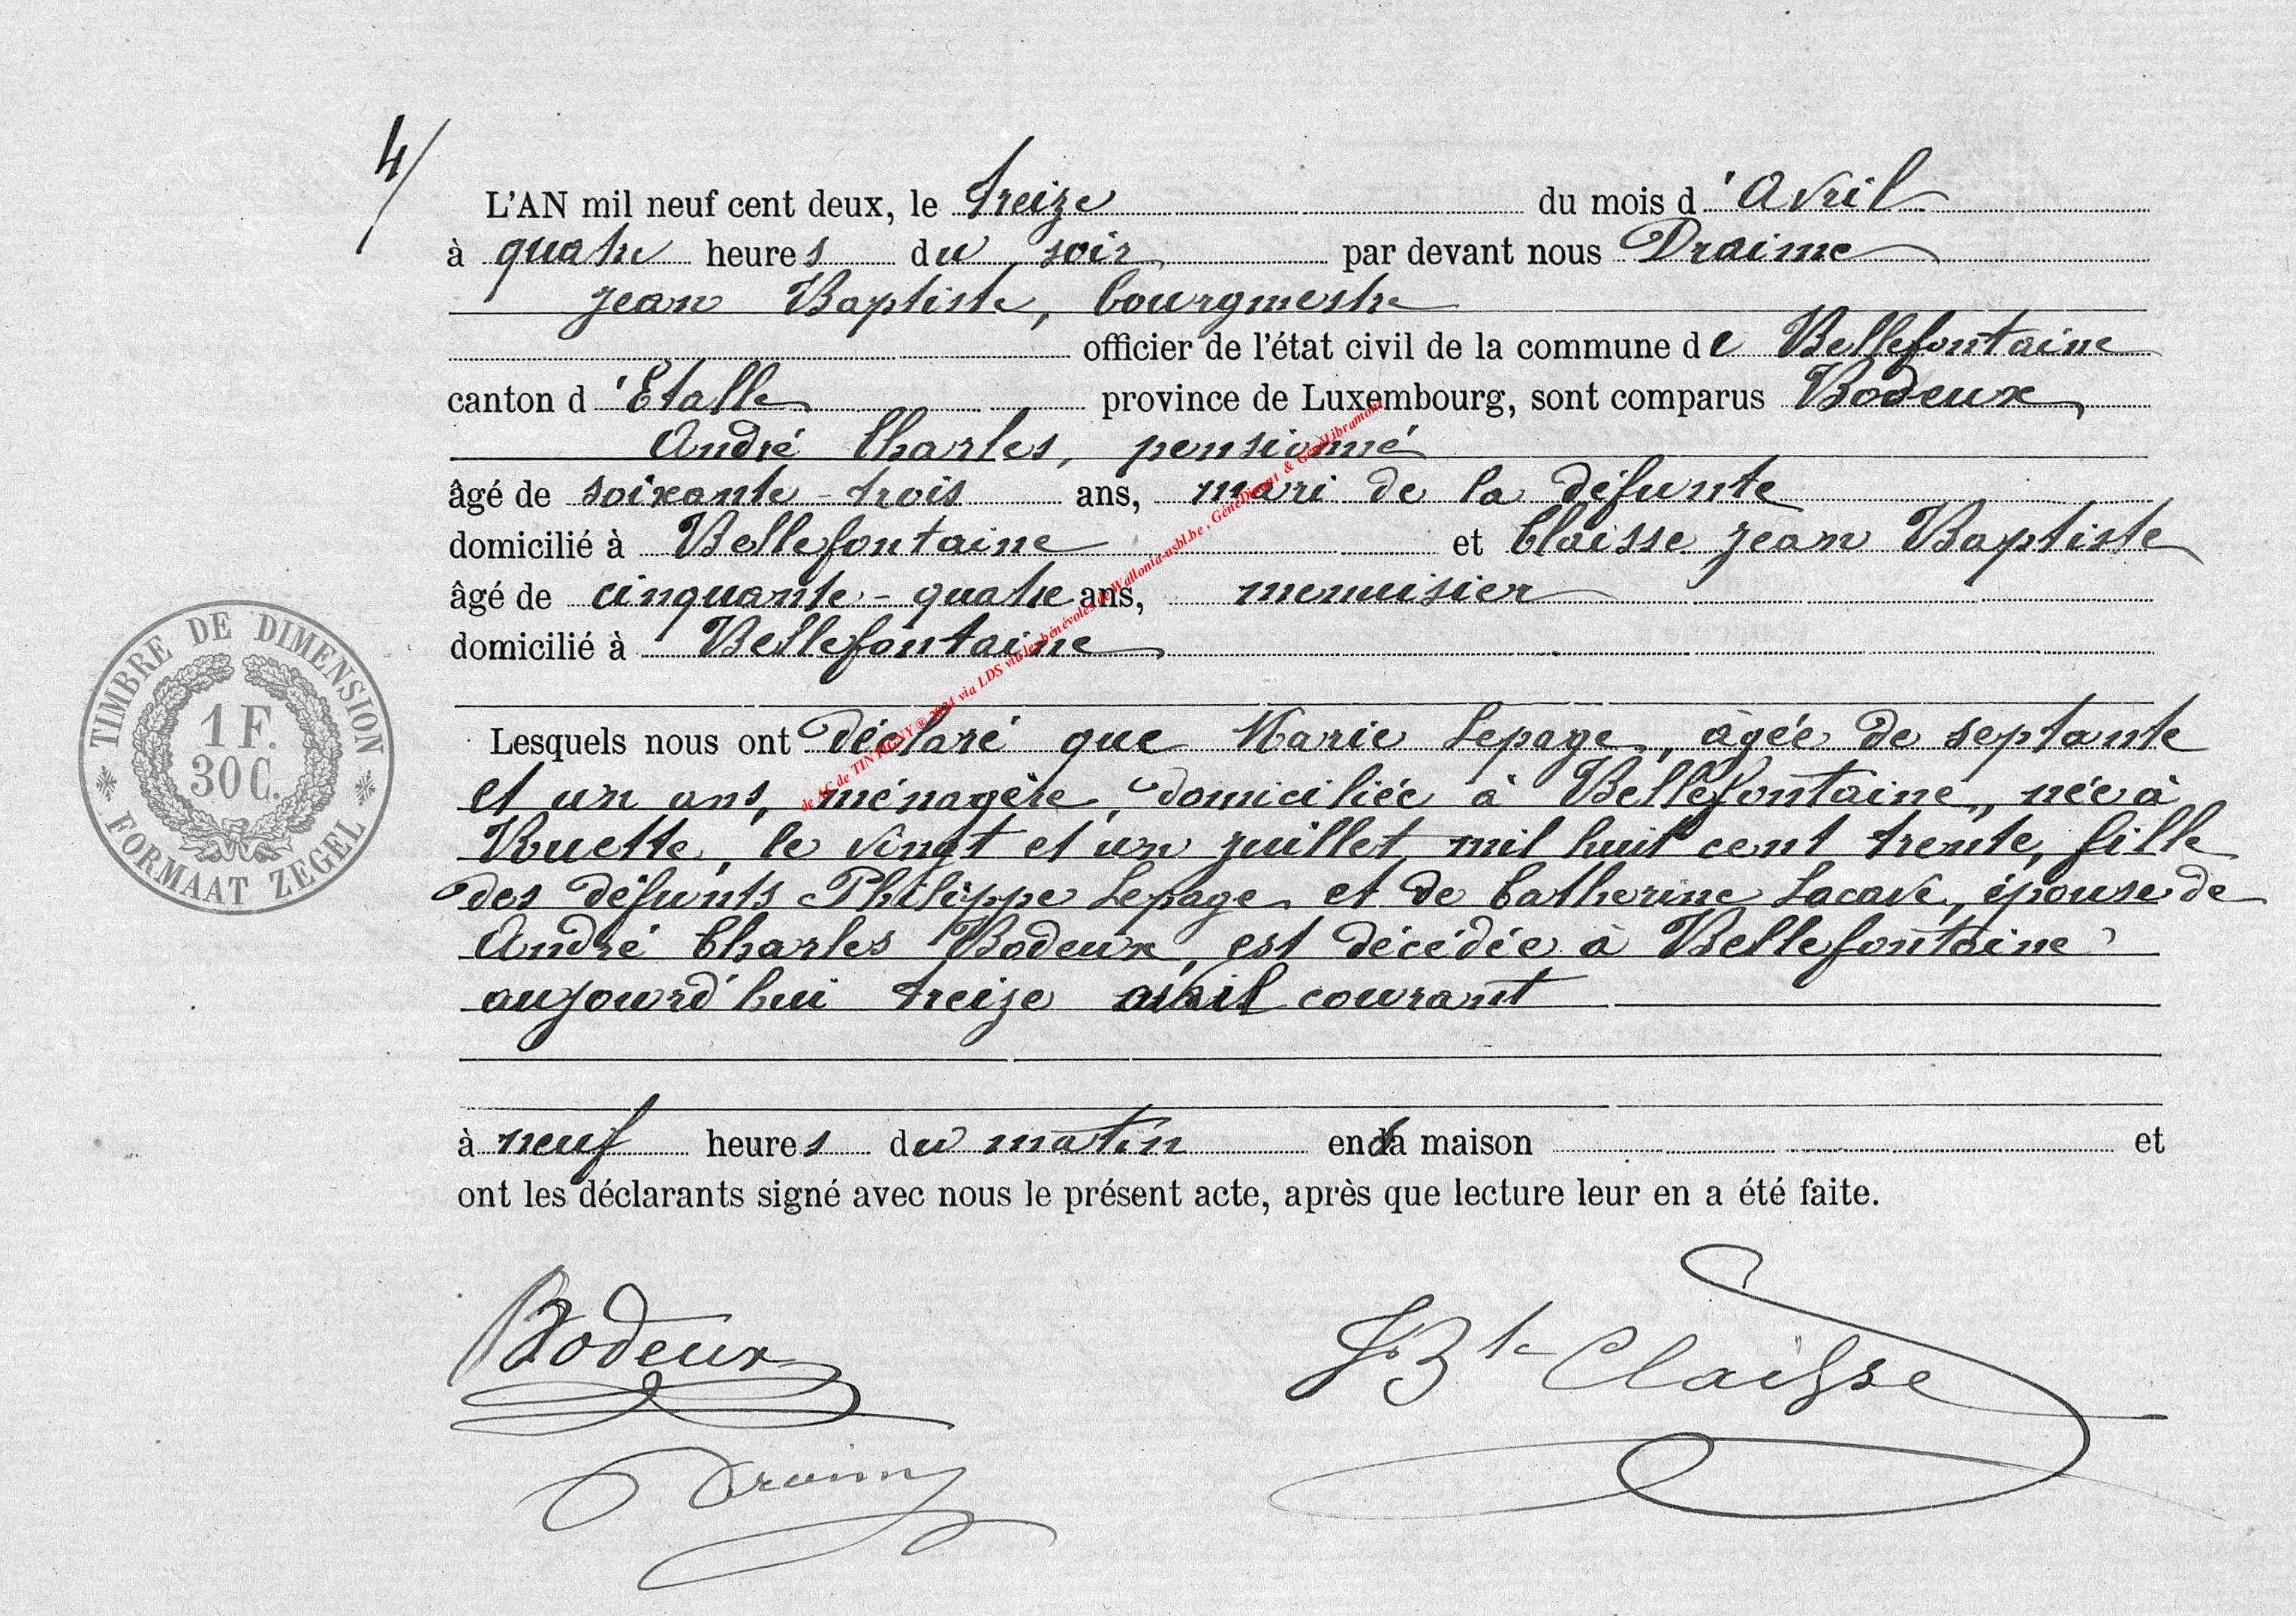 4/
L'AN mil neuf cent deux, le treize du mois d'Avril
à quatre heures du soir par devant nous Draime
Jean Baptiste, bourgmestre
officier de l'état civil de la commune de Bellefontaine
canton d'Etalle province de Luxembourg, sont comparus Bodeux
André Charles, pensionné
âgé de soixante-trois ans, mari de la défunte
domicilié à Bellefontaine et Claisse Jean Baptiste
âgé de cinquante-quatre ans, menuisier
domicilié à Bellefontaine
Lesquels nous ont déclaré que Marie Lepage, âgée de septante
et un ans, ménagère, domiciliée à Bellefontaine, née à
le vingt et un juillet mil huit cent trente, fille
des défunts Philippe Lepage et de Catherine Lacave, épouse de
André Charles Bodeux, est décédée à Bellefontaine
aujourd'hui treize avril courant
à neuf heures du matin en sa maison et
ont les déclarants signé avec nous le présent acte, après que lecture leur en a été faite.
TIMBRE DE DIMENSION
1 F.
30 C.
FORMAAT ZEGEL
de AC de TINTIGNY ® 2021 via LDS via les bénévoles de Wallonia-asbl.be, GénéDinant & GénéLibramont
Bodeux
JBte Claisse
Draime